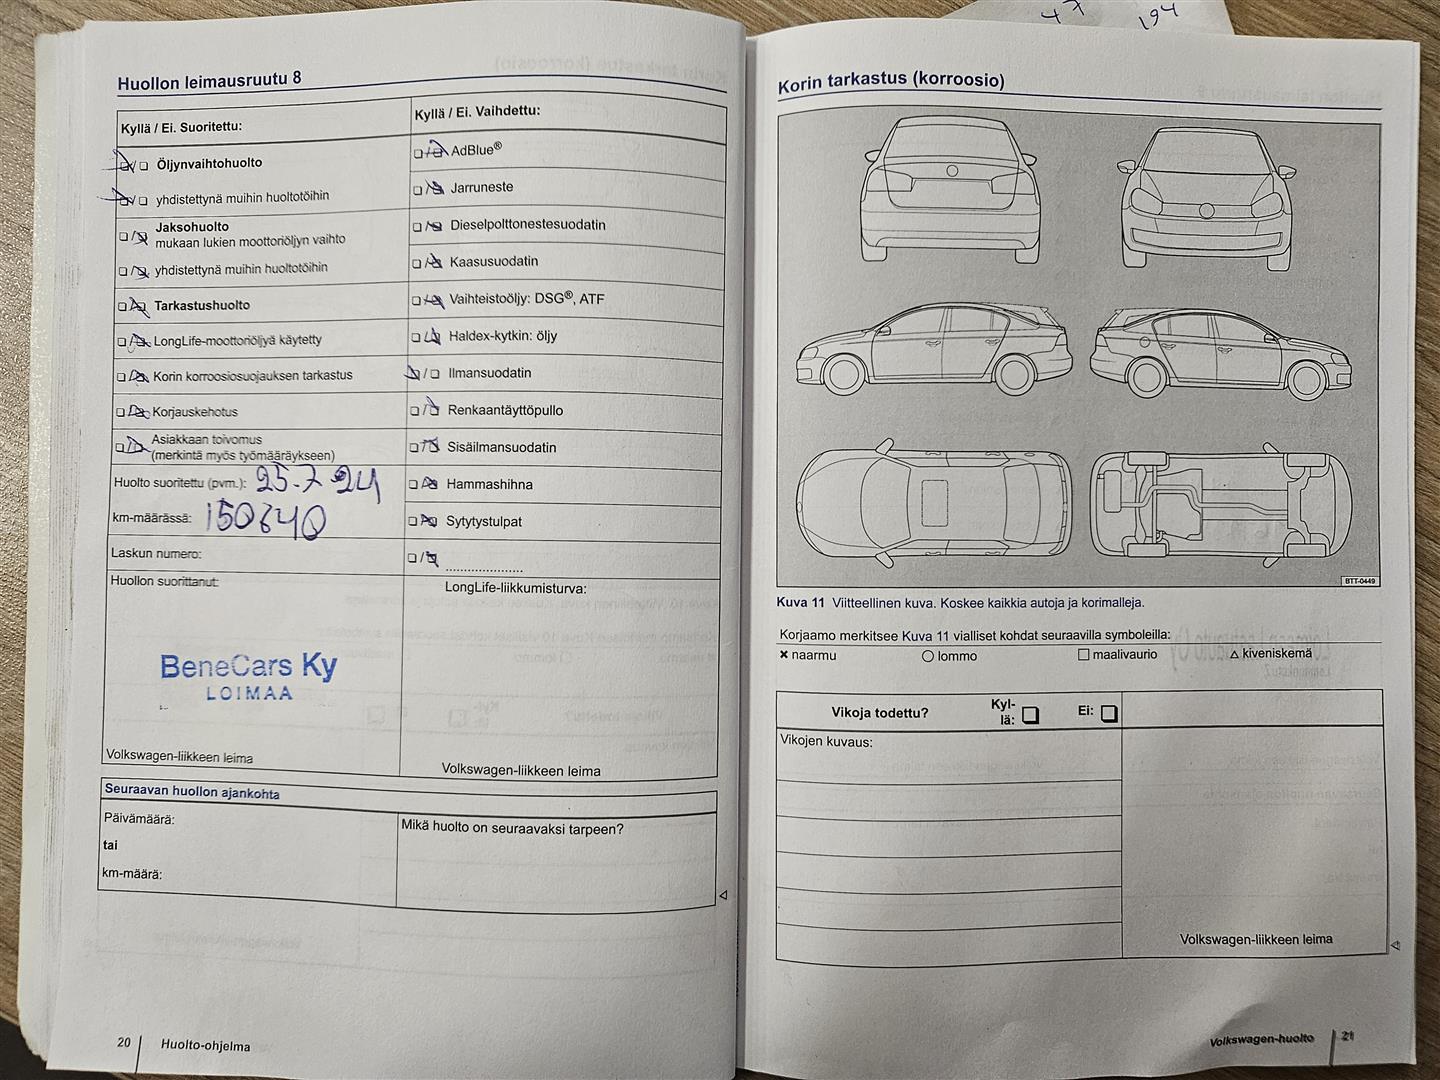 47 194
Huollon leimausruutu 8
Kyllä / Ei. Suoritettu:
Öljynvaihtohuolto
yhdistettynä muihin huoltotöihin
Jaksohuolto
mukaan lukien moottoriöljyn vaihto
yhdistettynä muihin huoltotöihin
Tarkastushuolto
LongLife-moottoriöljyä käytetty
Korin korroosiosuojauksen tarkastus
Korjauskehotus
Asiakkaan toivomus
(merkintä myös työmääräykseen)
Huolto suoritettu (pvm.): 25.7.24
km-määrässä: 150640
Laskun numero:
Huollon suorittanut:
BeneCars Ky
LOIMAA
Volkswagen-liikkeen leima
Kyllä / Ei. Vaihdettu:
AdBlue®
Jarruneste
Dieselpolttonestesuodatin
Kaasusuodatin
Vaihteistoöljy: DSG®, ATF
Haldex-kytkin: öljy
Ilmansuodatin
Renkaantäyttöpullo
Sisäilmansuodatin
Hammashihna
Sytytystulpat
....................
LongLife-liikkumisturva:
Volkswagen-liikkeen leima
Seuraavan huollon ajankohta
Päivämäärä:
tai
km-määrä:
Mikä huolto on seuraavaksi tarpeen?
20 Huolto-ohjelma
Korin tarkastus (korroosio)
BTT-0449
Kuva 11 Viitteellinen kuva. Koskee kaikkia autoja ja korimalleja.
Korjaamo merkitsee Kuva 11 vialliset kohdat seuraavilla symboleilla:
naarmu lommo maalivaurio kiveniskemä
Vikoja todettu? Kyl-
lä: Ei:
Vikojen kuvaus:
Volkswagen-liikkeen leima
Volkswagen-huolto 21